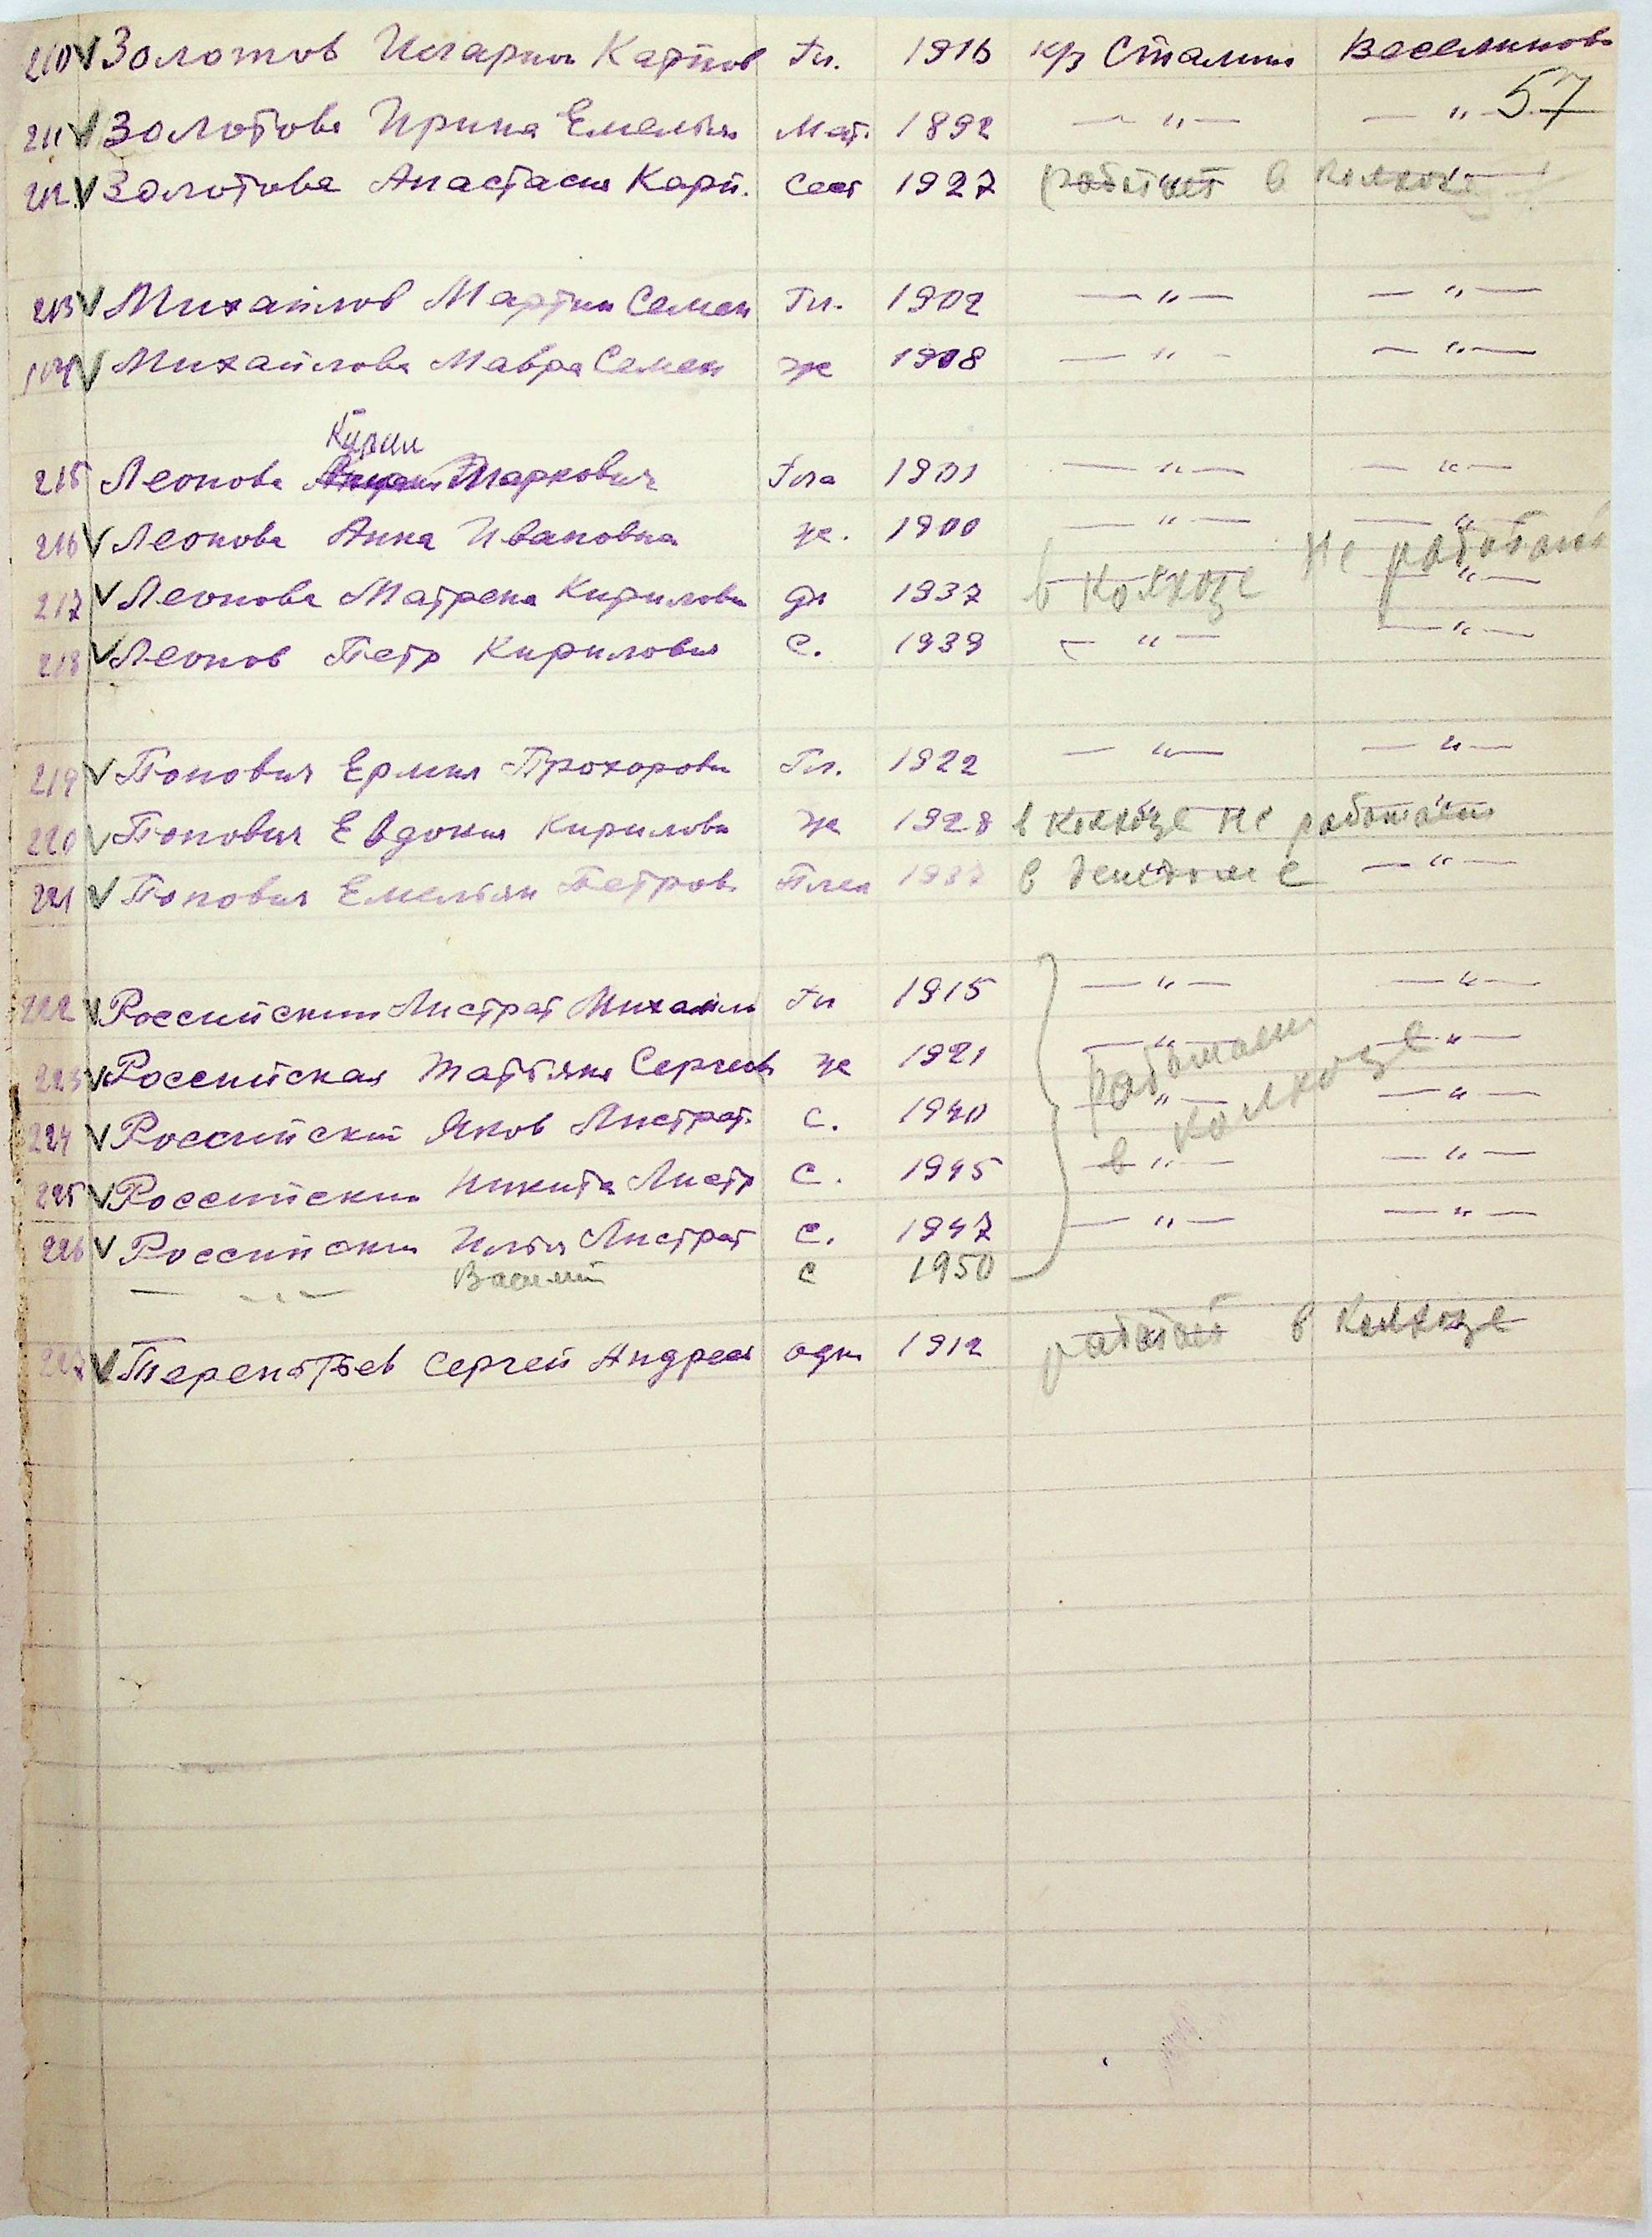 210 √ Золотов Иларион Карпов Гл. 1916 к/з Сталина Веселиново
57
211 √ Золотова Ирина Емельян Мат. 1892 — " — — " —
212 √ Золотова Анастасия Карп. Сест 1927 работает в колхозе
213 √ Михайлов Мартин Семен Гл. 1902 — " — — " —
214 √ Михайлова Мавра Семен же 1908 — " — — " —
Кирил
215 Леонова Маркович Гла 1901 — " — — " —
216 √ Леонова Анна Ивановна же. 1900 — " — — " —
не работает
217 √ Леонова Матрена Кирилов дч 1937 в колхозе — " —
218 √ Леонов Петр Кирилович С. 1939 — " — — " —
219 √ Попович Ермил Прохорови Гл. 1922 — " — — " —
220 √ Попович Евдокия Кирилов же 1928 в колхозе не работает
221 √ Попович Емельян Петров Плем 1937 в детдоме — " —
222 √ Российский Листрат Михаил Гл 1915 — " — — " —
223 √ Российская Татьяна Сергеев же 1921 — " — — " —
работает
224 √ Российский Яков Листрат. С. 1940 — " — — " —
в колхозе
225 √ Российский Никита Листр С. 1945 — " — — " —
226 √ Российский Илья Листрат С. 1947 — " — — " —
— " — Василий С 1950
227 √ Терентьев Сергей Андреев один 1912 работает в колхозе